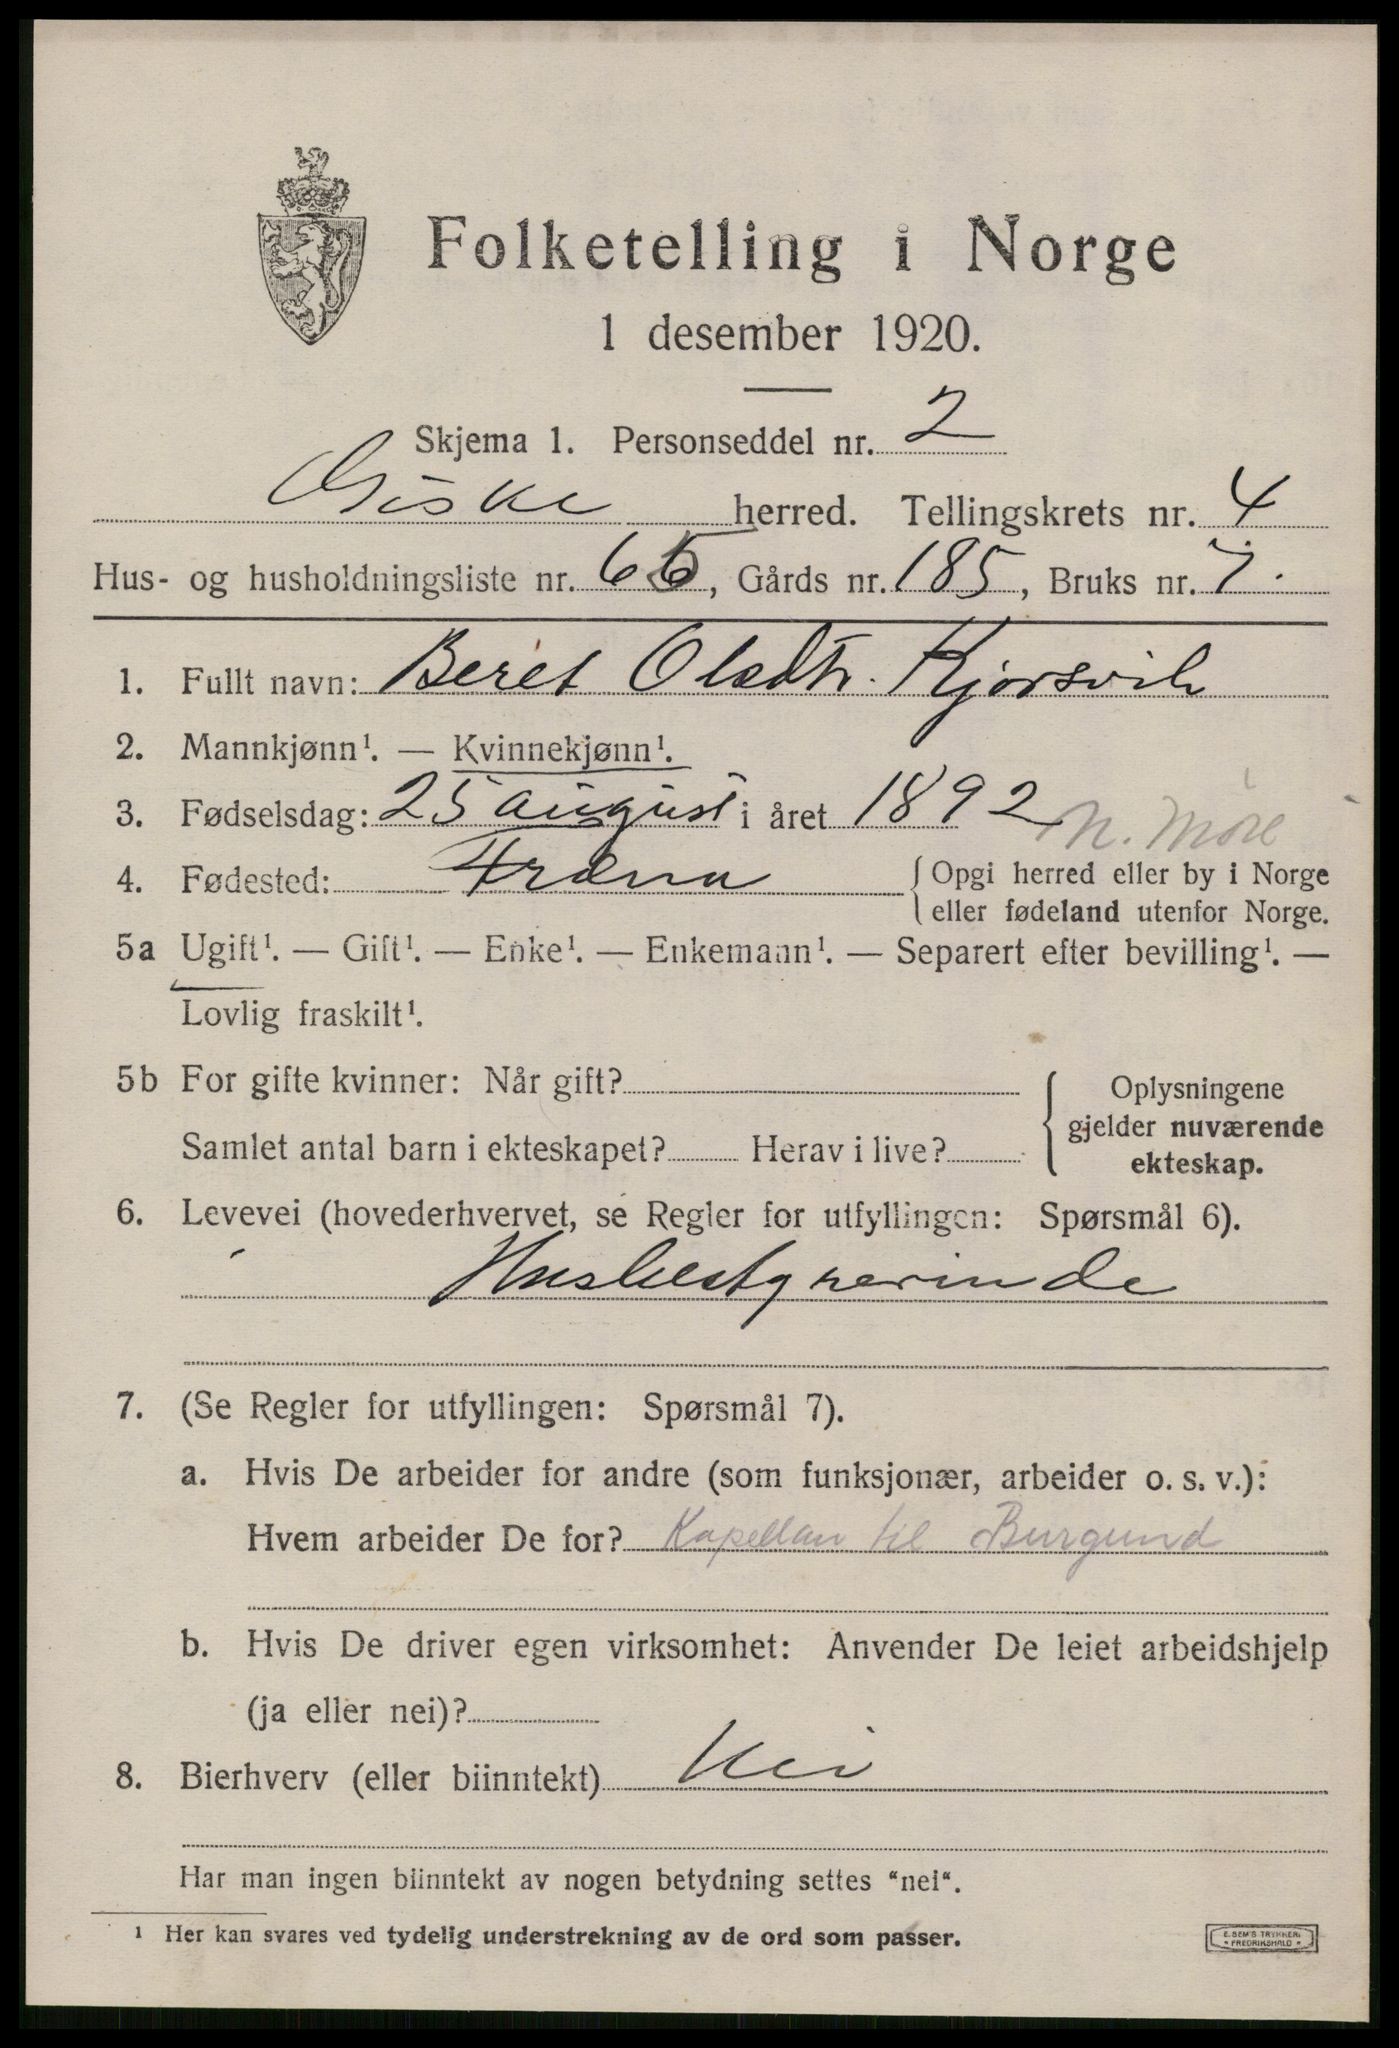 Folketelling i Norge
1 desember 1920.
Skjema 1. Personseddel nr. 2
Giske herred. Tellingskrets nr. 4
Hus- og husholdningsliste nr. 65, Gårds nr. 185, Bruks nr. 7.
1. Fullt navn: Beret Olsdtr. Kjørsvik
2. Mannkjønn¹. — Kvinnekjønn¹.
3. Fødselsdag: 25 august i året 1892 N. Møre
4. Fødested: Fræna { Opgi herred eller by i Norge
eller fødeland utenfor Norge.
5a Ugift¹. — Gift¹. — Enke¹. — Enkemann¹. — Separert efter bevilling¹. —
Lovlig fraskilt¹.
5b For gifte kvinner: Når gift? { Oplysningene
gjelder nuværende
Samlet antal barn i ekteskapet? Herav i live? ekteskap.
6. Levevei (hovederhvervet, se Regler for utfyllingen: Spørsmål 6).
Husbestyrerinde
7. (Se Regler for utfyllingen: Spørsmål 7).
a. Hvis De arbeider for andre (som funksjonær, arbeider o. s. v.):
Hvem arbeider De for? Kapellan til Burgund
b. Hvis De driver egen virksomhet: Anvender De leiet arbeidshjelp
(ja eller nei)?
8. Bierhverv (eller biinntekt) Nei
Har man ingen biinntekt av nogen betydning settes "nei".
¹ Her kan svares ved tydelig understrekning av de ord som passer.
E. SEM'S TRYKKERI
FREDRIKSHALD